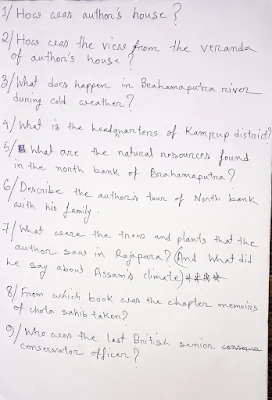 1/ How was author's house?
2/ How was the view from the veranda
of author's house?
3/ What does happen in Brahamaputra river
during cold weather?
4/ What is the headquarters of Kamrup district?
5/ What are the natural resources found
in the north bank of Brahamaputra?
6/ Describe the author's tour of North bank
with his family.
7/ What were the trees and plants that the
author saw in Rajapara? (And What did
he say about Assam's climate) ****
8/ From which book was the chapter memoirs
of chota sahib taken?
9/ Who was the last British senior
conservator officer?